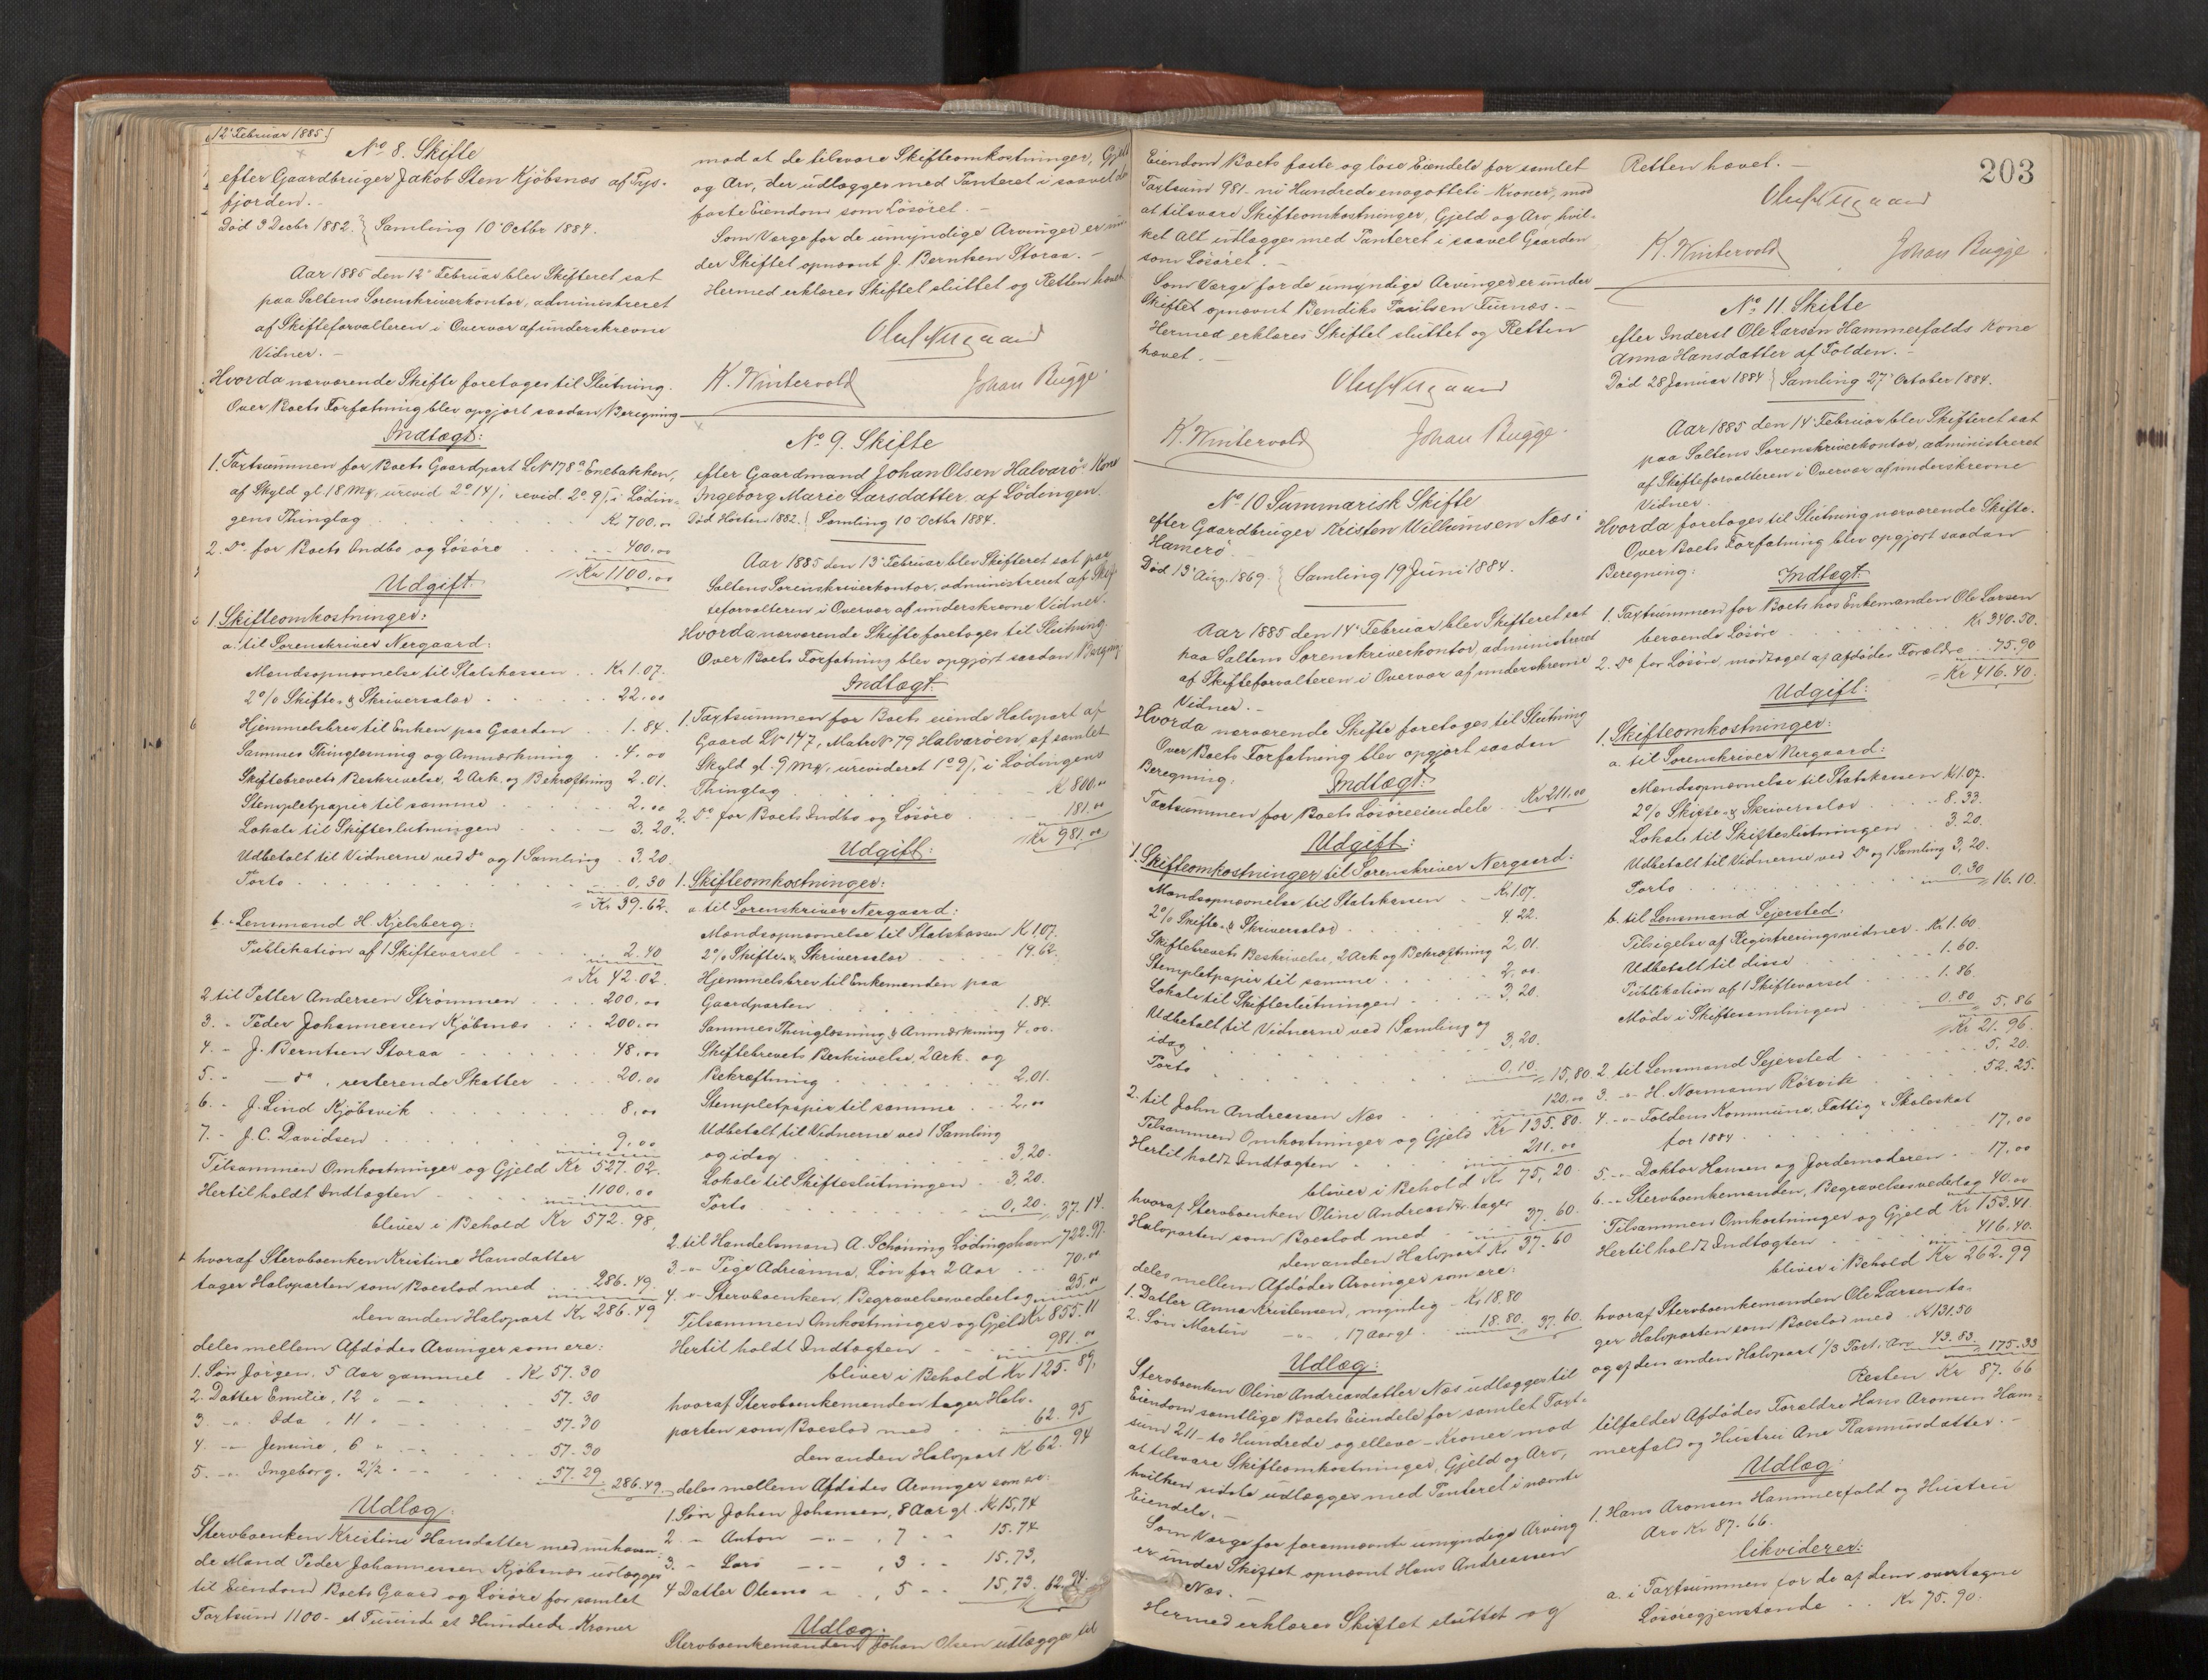 12' Februar 1885.
No 8. Skifte
efter Gaardbruger Jakob Sten Kjöbsnæs af Tys-
fjorden.
Död 3 Decbr 1882. } Samling 10' Octbr 1884.
Aar 1885 den 12' Februar blev Skifteret sat
paa Saltens Sorenskriverkontor, administreret
af Skifteforvalteren i Overvær af underskrevne
Vidner. –
Hvorda nærværende Skifte foretoges til Slutning.
Over Boets Forfatning blev opgjort saadan Beregning
Indtægt:
1. Taxtsummen for Boets Gaardpart L.N 178a Enebakken,
af Skyld gl. 18 Mk, urevid 2o 14/, revid. 2o. 9/, i Lödin-
gens Thinglag Kr 700.00
2. Do for Boets Indbo og Lösöre 400.00
Kr 1100.00
Udgift:
1. Skifteomkostninger:
a. til Sorenskriver Nergaard:
Mandsopnævnelse til Statskassen Kr 1.07.
2% Skifte- & Skriversalær 22.00
Hjemmelsbrev til Enken paa Gaarden 1.84.
Sammes Thinglæsning og Anmærkning 4.00
Skiftebrevets Beskrivelse, 2 Ark. og Bekræftning 2.01.
Stempletpapir til samme 2.00
Lokale til Skifteslutningen 3.20.
Udbetalt til Vidnerne ved Do og 1 Samling 3.20.
Porto 0,30
Kr 39.62.
b. Lensmand H. Kjelsberg:
Publikation af 1 Skiftevarsel 2.40
Kr 42.02.
2 til Petter Andersen Strömmen 200.00
3. " Peder Johannessen Kjöbsnæs 200.00
4. " J. Berntsen Storaa 48.00
5. " — do, resterende Skatter 20.00
6. " J. Lind Kjöbsvik 8.00
7. " J. C. Davidsen 9.00
Tilsammen Omkostninger og Gjeld Kr 527.02.
Hertil holdt Indtægten 1100.00
bliver i Behold Kr 572.98.
hvoraf Stervboenken Kristine Hansdatter
tager Halvparten som Boeslod med 286.49.
den anden Halvpart Kr 286.49
deles mellem Afdödes Arvinger som ere:
1. Sön Jörgen, 5 Aar gammel Kr 57.30
2. Datter Emilie, 12 " 57.30
3. " Ida, 11 " 57.30
4. " Jensine, 6 " 57.30
5. " Ingeborg, 2½ " 57.29 286.49.
Udlæg:
Stervboenken Kristine Hansdatter med nuhaven-
de Mand Peder Johannessen Kjöbsnæs udlægges
til Eiendom Boets Gaard og Lösöre for samlet
Taxtsum 1100 – et Tusinde et Hundrede – Kroner
mod at de tilsvare Skifteomkostninger, Gjeld
og Arv, der udlægges med Panteret i saavel de
faste Eiendom som Lösöret. –
Som Værge for de umyndige Arvinger er un-
der Skiftet opnævnt J. Berntsen Storaa. –
Hermed erklæres Skiftet sluttet og Retten hævet
Oluf Nergaard
K. Wintervold Johan Bugge
No 9. Skifte
efter Gaardmand Johan Olsen Halvarö's Kone
Ingeborg Marie Larsdatter af Lödingen.
Död Hösten 1882. } Samling 10 Octbr 1884.
Aar 1885 den 13' Februar blev Skifteret sat paa
Saltens Sorenskriverkontor, administreret af Skif-
teforvalteren i Overvær af underskrevne Vidner.
Hvorda nærværende Skifte foretoges til Slutning.
Over Boets Forfatning blev opgjort saadan Beregning
Indtægt:
1. Taxtsummen for Boets eiende Halvpart af
Gaard LN 147, Matr N 79 Halvaröen, af samlet
Skyld gl. 9 Mk, urevideret 1o 9/, i Lödingens
Thinglag Kr 800.00
2. Do for Boets Indbo og Lösöre 181.00
Kr 981.00
Udgift:
1. Skifteomkostninger:
a. til Sorenskriver Nergaard:
Mandsopnævnelse til Statskassen Kr 1.07.
2% Skifte- & Skriversalær 19.62.
Hjemmelsbrev til Enkemanden paa
Gaardparten 1.84.
Sammes Thinglæsning & Anmærkning 4.00.
Skiftebrevets Beskrivelse, 2 Ark. og
Bekræftning 2.01.
Stempletpapir til samme 2.00
Udbetalt til Vidnerne ved 1 Samling
og idag 3.20.
Lokale til Skifteslutningen 3.20.
Porto 0,20. 37.14.
2. til Handelsmand A. Schöning Lödingshavn 722.97.
3. " Pige Adrianna, Lön for 2 Aar 70.00
4. " Stervboenken, Begravelsesvederlag 25.00
Tilsammen Omkostninger og Gjeld Kr 855.11
Hertil holdt Indtægten 981.00
bliver i Behold Kr 125.89.
hvoraf Stervboenkemanden tager Halv-
parten som Boeslod med 62.95
den anden Halvpart Kr 62.94
deles mellem Afdödes Arvinger som er:
1. Sön Johan Johansen, 8 Aar gl. Kr 15.74
2. " Anton " 7 " 15.74
3. " Lars " 3 " 15.73,
4 Datter Oleanna " 5 " 15.73. 62.94.
Udlæg:
Stervboenkemanden Johan Olsen udlægges til
203
Eiendom Boets faste og löse Eiendele for samlet
Taxtsum 981 – ni Hundrede enogotteti – Kroner, mod
at tilsvare Skifteomkostninger, Gjeld og Arv, hvil-
ket Alt udlægges med Panteret i saavel Gaarden
som Lösöret. –
Som Værge for de umyndige Arvinger er under
Skiftet opnævnt Bendiks Paulsen Furnæs. –
Hermed erklæres Skiftet sluttet og Retten
hævet. –
Oluf Nergaard
K. Wintervold Johan Bugge.
No 10 Summarisk Skifte
efter Gaardbruger Kristen Willumsen Næs i
Hamerö.
Död 13' Aug. 1869. } Samling 19 Juni 1884.
Aar 1885 den 14' Februar blev Skifteret sat
paa Saltens Sorenskriverkontor, administreret
af Skifteforvalteren i Overvær af underskrevne
Vidner. –
Hvorda nærværende Skifte foretoges til Slutning
Over Boets Forfatning blev opgjort saadan
Beregning:
Indtægt:
Taxtsummen for Boets Lösöreeiendele Kr 211.00
Udgift:
1. Skifteomkostninger til Sorenskriver Nergaard:
Mandsopnævnelse til Statskassen Kr 1.07.
2% Skifte- & Skriversalær 4.22.
Skiftebrevets Beskrivelse, 2 Ark og Bekræftning 2,01.
Stempletpapir til samme 2,00.
Lokale til Skifteslutningen 3,20.
Udbetalt til Vidnerne ved 1 Samling og
idag 3,20.
Porto 0,10. 15,80.
2. til John Andreassen Næs 120.00
Tilsammen Omkostninger og Gjeld Kr 135.80.
Hertil holdt Indtægten 211.00
bliver i Behold Kr 75,20
hvoraf Stervboenken Oline Andreasdtr. tager
Halvparten som Boeslod med 37.60.
den anden Halvpart Kr 37.60
deles mellem Afdödes Arvinger som ere:
1. Datter Anna Kristensen, myndig Kr 18.80
2. Sön Martin " 17 Aar gl. 18.80. 37.60.
Udlæg:
Stervboenken Oline Andreasdatter Næs udlægges til
Eiendom samtlige Boets Eiendele for samlet Taxt-
sum 211 – to Hundrede og elleve – Kroner mod
at tilsvare Skifteomkostninger, Gjeld og Arv,
hvilken sidste udlægges med Panteret i nævnte
Eiendele. –
Som Værge for forannævnte umyndige Arving
er under Skiftet opnævnt Hans Andreassen
Næs.
Hermed erklæres Skiftet sluttet og
Retten hævet. –
Oluf Nergaard
K. Wintervold Johan Bugge
No 11. Skifte
efter Inderst Ole Larsen Hammerfalds Kone
Anna Hansdatter af Folden. –
Död 28 Januar 1884 } Samling 27' October 1884.
Aar 1885 den 14' Februar blev Skifteret sat
paa Saltens Sorenskriverkontor, administreret
af Skifteforvalteren i Overvær af underskrevne
Vidner.
Hvorda foretoges til Slutning nærværende Skifte.
Over Boets Forfatning blev opgjort saadan
Beregning:
Indtægt:
1. Taxtsummen for Boets hos Enkemanden Ole Larsen
beroende Lösöre Kr 340.50.
2. Do for Lösöre, modtaget af Afdödes Forældre 75.90
Kr 416.40.
Udgift:
1. Skifteomkostninger:
a. til Sorenskriver Nergaard:
Mandsopnævnelse til Statskassen Kr 1.07.
2% Skifte- & Skriversalær 8.33.
Lokale til Skifteslutningen 3.20.
Udbetalt til Vidnerne ved Do og 1 Samling 3,20.
Porto 0.30 16.10.
b. til Lensmand Sejersted:
Tilsigelse af Registreringsvidner Kr 1.60
Udbetalt til disse 1.60.
Publikation af 1 Skiftevarsel 1.86.
Möde i Skiftesamlingen 0.80 5,86
Kr 21.96.
2 til Lensmand Sejersted 5.20.
3. " H. Normann Rösvik 52.25.
4. " Foldens Kommune, Fattig & Skoleskat
for 1884 17,00
5. " Doktor Hansen og Jordemoderen 17,00
6. " Stervboenkemanden, Begravelsesvederlag 40.00
Tilsammen Omkostninger og Gjeld Kr 153.41
Hertil holdt Indtægten 416.40.
bliver i Behold Kr 262.99
hvoraf Stervboenkemanden Ole Larsen ta-
ger Halvparten som Boeslod med Kr 131.50
og af den anden Halvpart 1/3 Part i Arv 43.83. 175.33
Resten Kr 87.66
tilfalder Afdödes Forældre Hans Aronsen Ham-
merfald og Hustru Ane Rasmusdatter. –
Udlæg:
1. Hans Aronsen Hammerfald og Hustru
Arv Kr 87.66.
likviderer:
a. i Taxtsummen for de af dem overtagne
Lösöregjenstande Kr 75.90.